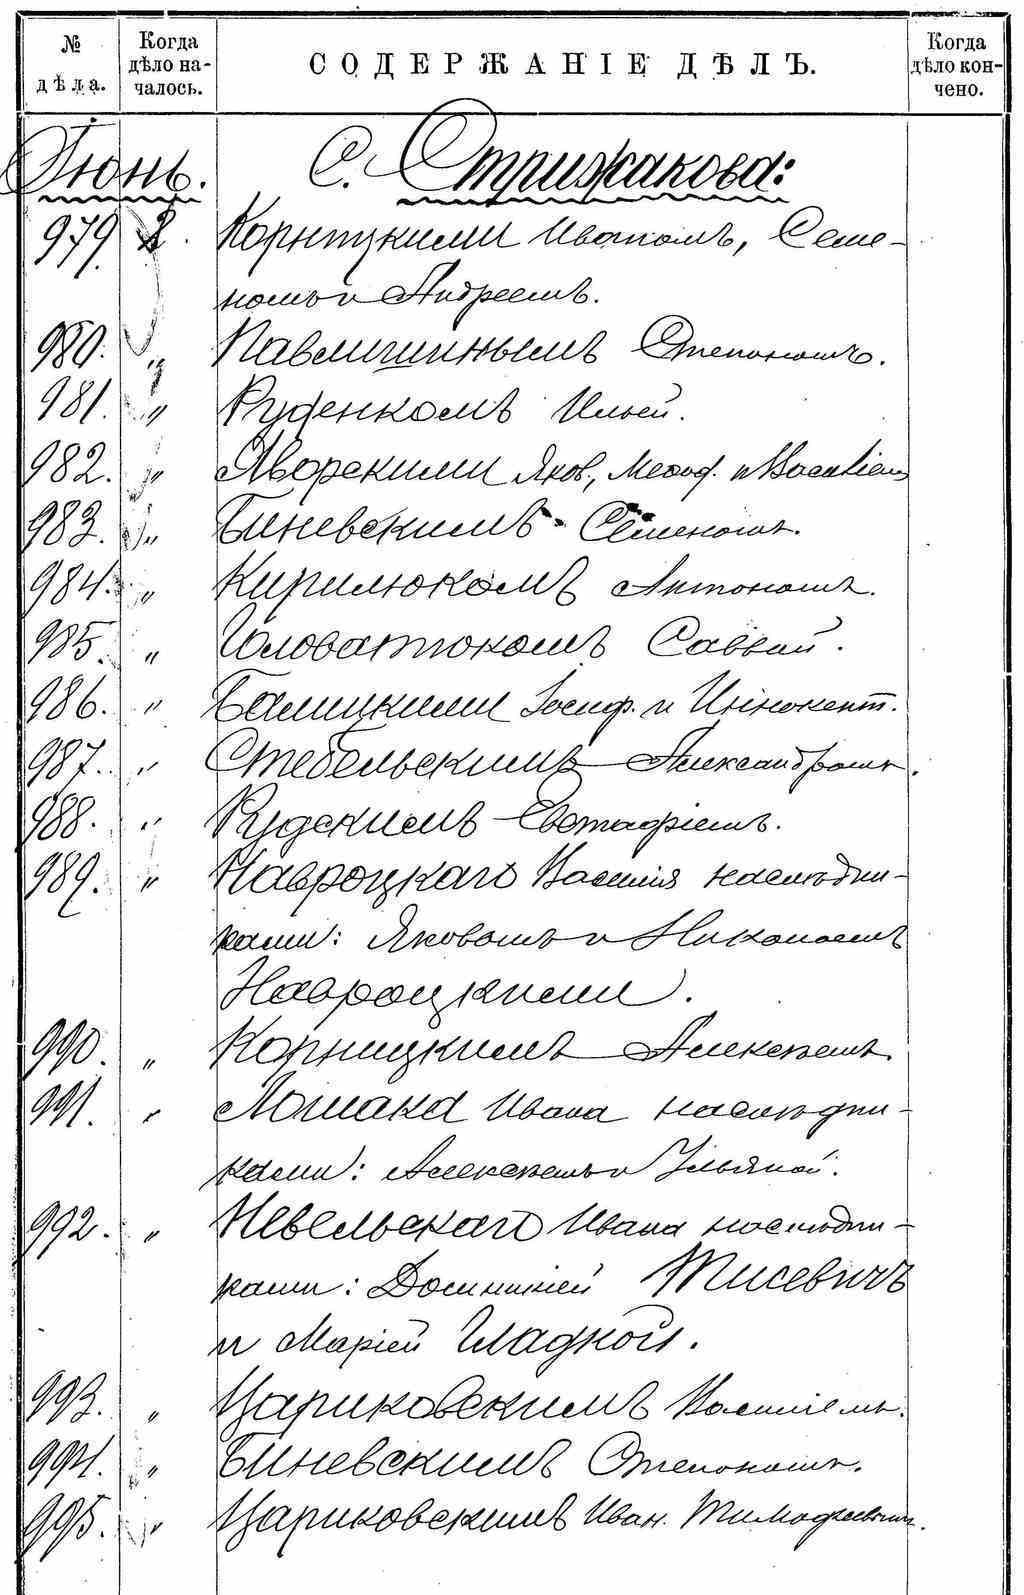 № дѣла. Когда дѣло началось. СОДЕРЖАНІЕ ДѢЛЪ. Когда дѣло кончено.
Іюнь. С. Стрижакова:
979. 2. Корницкими Иваномъ, Семе-
номъ и Андреемъ.
980. „ Павлишинымъ Степаномъ.
981. „ Руденкомъ Ильей.
982. „ Яворскими Яков., Меѳод. и Василіемъ
983. „ Биневскимъ Семеномъ.
984. „ Кирилюкомъ Антономъ.
985. „ Головатюкомъ Саввой.
986. „ Балицкими Іосиф. и Иннокент.
987. „ Стебельскимъ Александромъ.
988. „ Рудскимъ Евстафіемъ.
989. „ Навроцкаго Василія наслѣдни-
ками: Яковомъ и Николаемъ
Навроцкими.
990. „ Корницкимъ Алексѣемъ.
991. „ Лошака Ивана наслѣдни-
ками: Алексѣемъ и Ульяной.
992. „ Невельскаго Ивана наслѣдни-
ками: Доминикей Тисевичъ
и Маріей Гладкой.
993. „ Цариковскимъ Василіемъ.
994. „ Биневскимъ Степаномъ.
995. „ Цариковскимъ Иван. Тимофеевымъ.